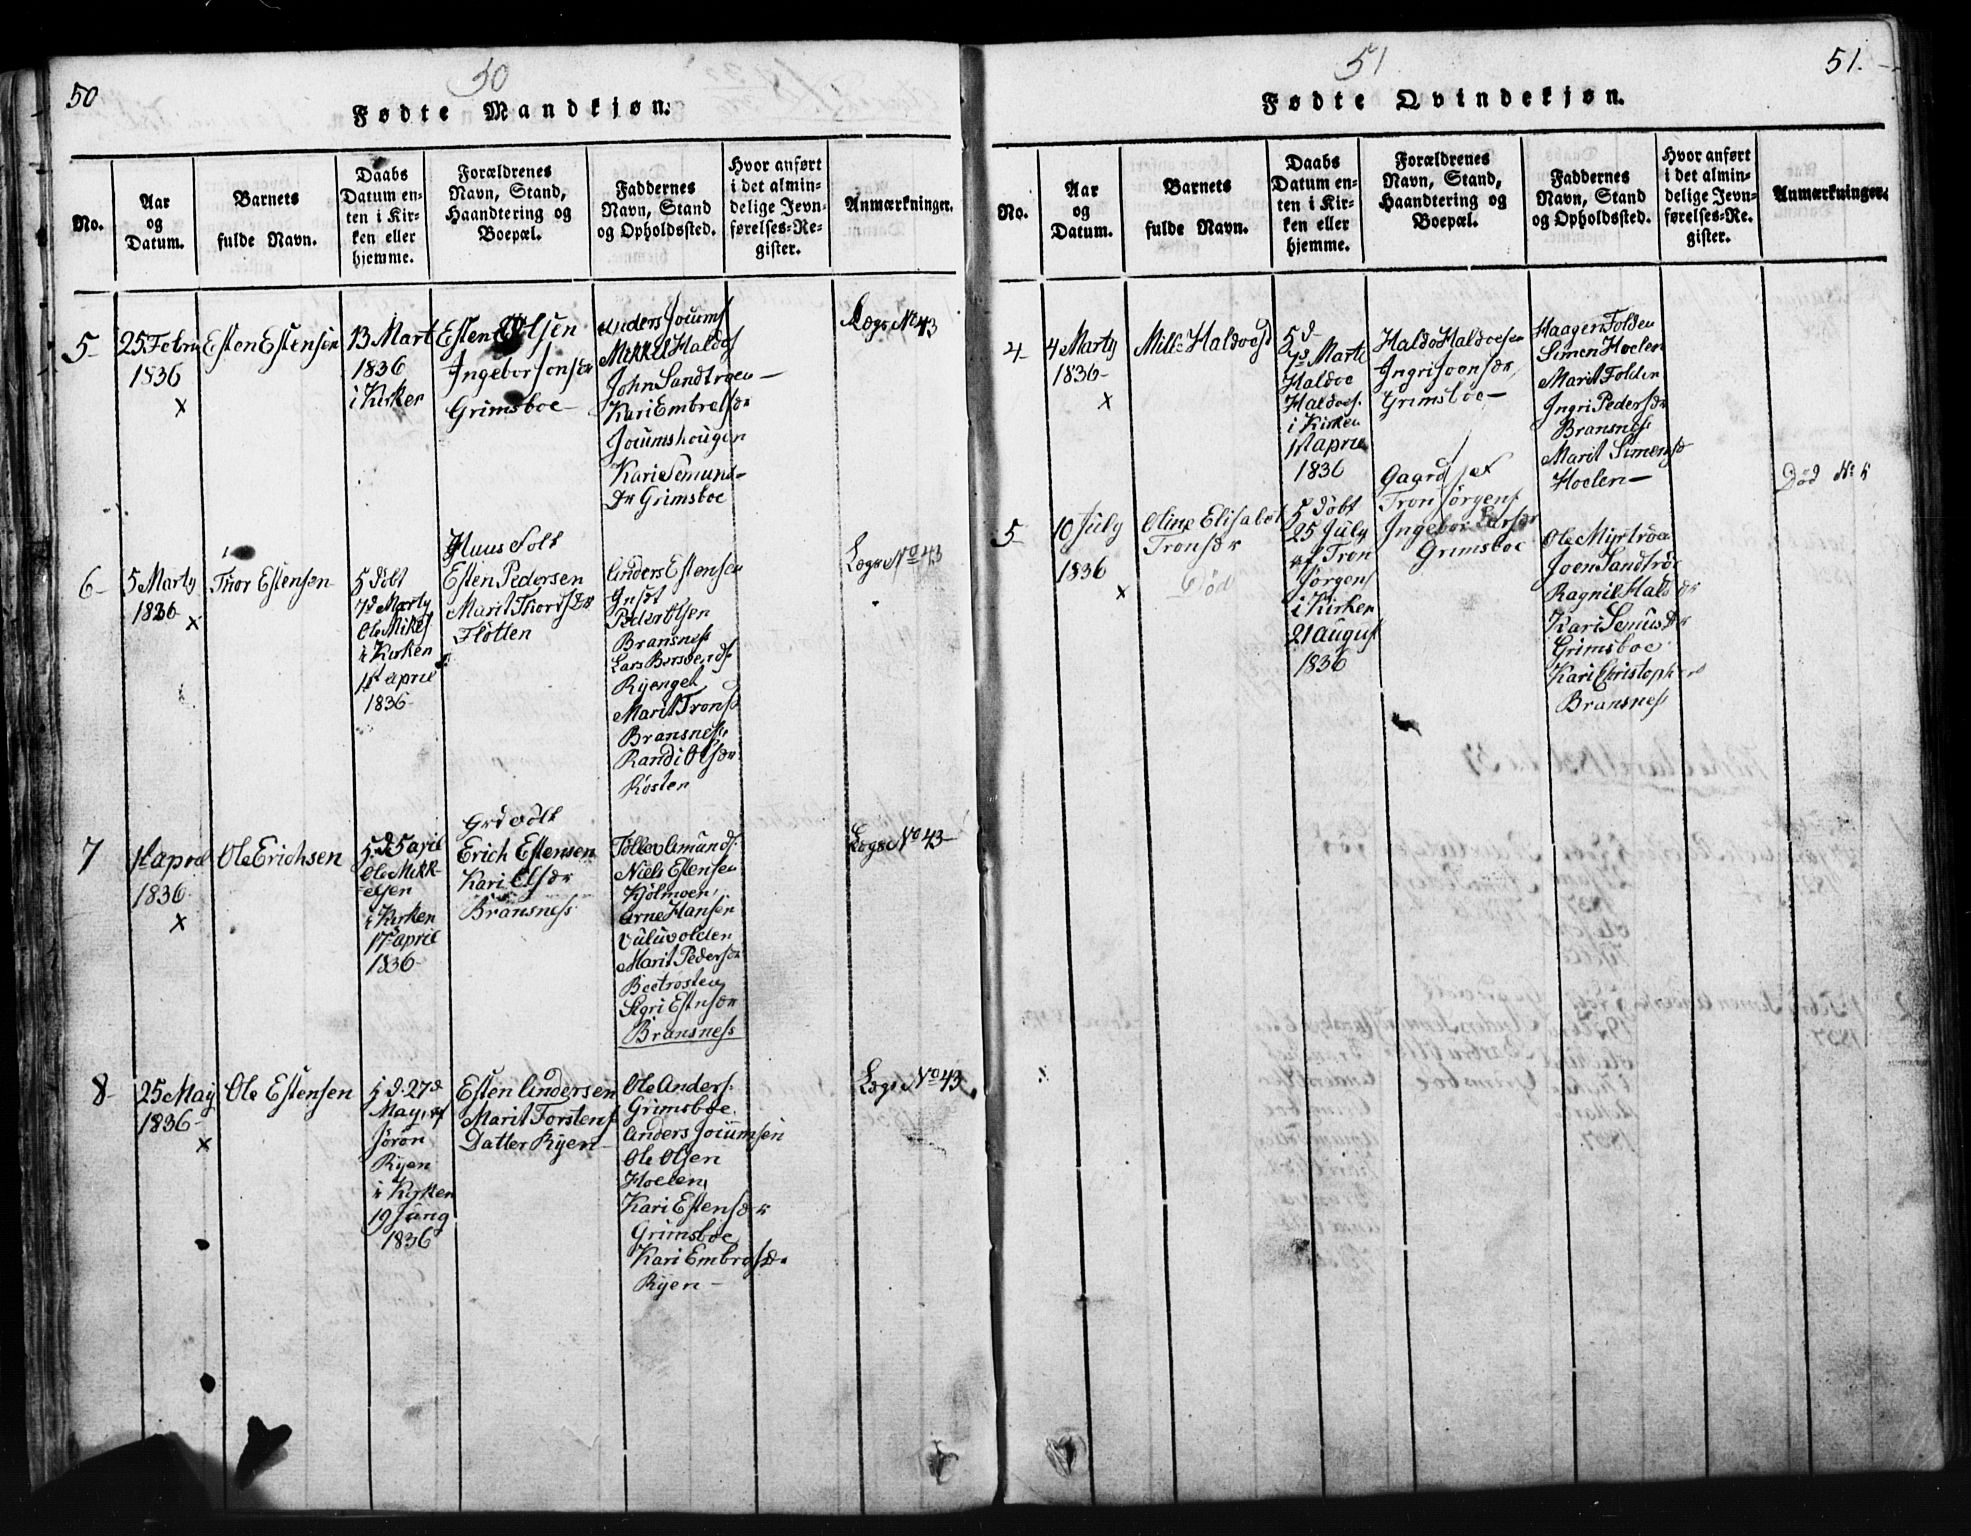 50
50
Fødte Mandkjøn.
No.
Aar
og
Datum.
Barnets
fulde Navn.
Daabs
Datum en-
ten i Kir-
ken eller
hjemme.
Forældrenes
Navn, Stand,
Haandtering og
Boepæl.
Faddernes
Navn, Stand
og Opholdssted.
Hvor anført
i det almin-
delige Jevn-
førelses-Re-
gister.
Anmærkninger.
5
25 Febru
1836
x
Esten Estensen
13 Mart
1836
i Kirken
Esten Olsen
Grimsboe
Anders Joums
Mikkel Haldos
John Sandtrøen
Kari Embretsdr
Joumshougen
Kari Semund-
dr Grimsboe
Lægs No 43
6
5 Marty
1836
x
Thor Estensen
5 Døbt
7d Marty
Ole Mikels
i Kirken
1st april
1836
Huus Folk
Esten Pedersen
Marit Thordsdr
Fløtten
Anders Estensen
Peder Olsen
Bransness
Ryenget
Marit Trons
Bransness
Randi Olsdr
Røsten
Lægs No 43
7
1st april
1836
x
Ole Erichsen
5 d 5 april
Ole Mikk-
elsen
i Kirken
17d april
1836
Grd Folk
Erich Estensen
Kari Olsdr
Bransness
Tollev Amunds
Niels Estensen
Kjølmoen
Arne Hansen
Vuluvolden
Marit Pedersdr
Sigri Estensdr
Bransness
Lægs No 43
8
25 May
1836
x
Ole Estensen
5 d 27d
May, af
Jøron
Ryen
i Kirken
19 Juny
1836
Esten Andersen
Marit Torstens
Datter Ryen
Ole Anders.
Grimsboe
Anders Joumsen
Ole Olsen
Hoelen
Kari Estensdr
Grimsboe
Kari Embretsdr
Ryen
Lægs No 43
51
51.
Fødte Qvindekjøn.
No.
Aar
og
Datum.
Barnets
fulde Navn.
Daabs
Datum en-
ten i Kir-
ken eller
hjemme.
Forældrenes
Navn, Stand,
Haandtering og
Boepæl.
Faddernes
Navn, Stand
og Opholdssted.
Hvor anført
i det almin-
delige Jevn-
førelses-Re-
gister.
Anmærkninger.
4
4 Marty
1836
x
Haldoesd
5 d
7d Marti
Haldoe
Haldoes.
i Kirken
1st april
1836
Haldo Haldoesen
Ingri Joensdr,
Grimsboe
Haagen Folden
Simen Hoelen
Marit Folden
Ingri Pedersdr
Bransness
Marit Simensd
Hoelen
5
10 July
1836
x
Oline Elisabet
Tronsdr
Død
5 døbt
25 July
af Tron
Jørgens
i Kirken
21 August
1836
Tron Jørgens
Ingebor
Grimsboe
Ole Myrtrøen
Joen Sandtrøe
Ragnil Haldodr
Kari Semusdr
Grimsboe
Kari Christopher
Bransness
Død No 5